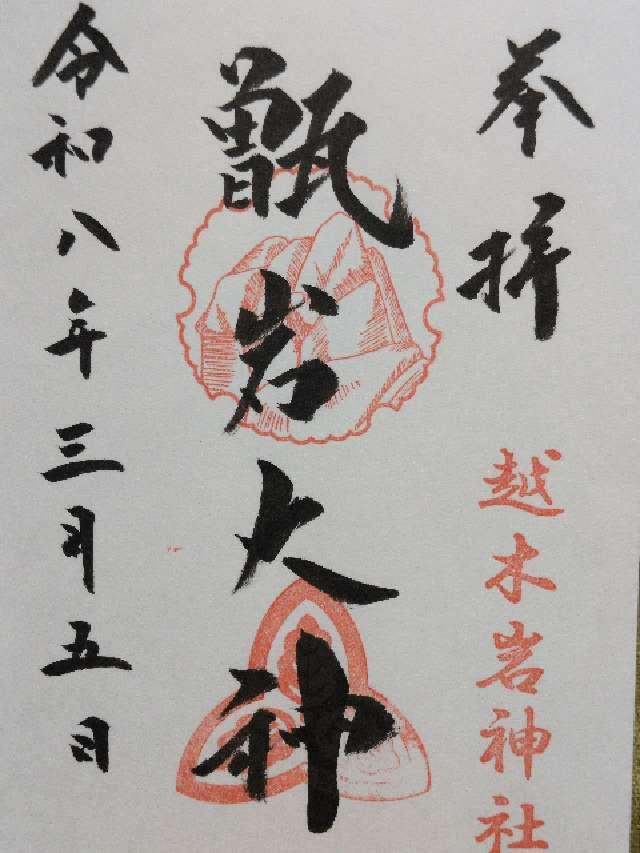 奉拝
越木岩神社
甑岩大神
令和八年三月五日